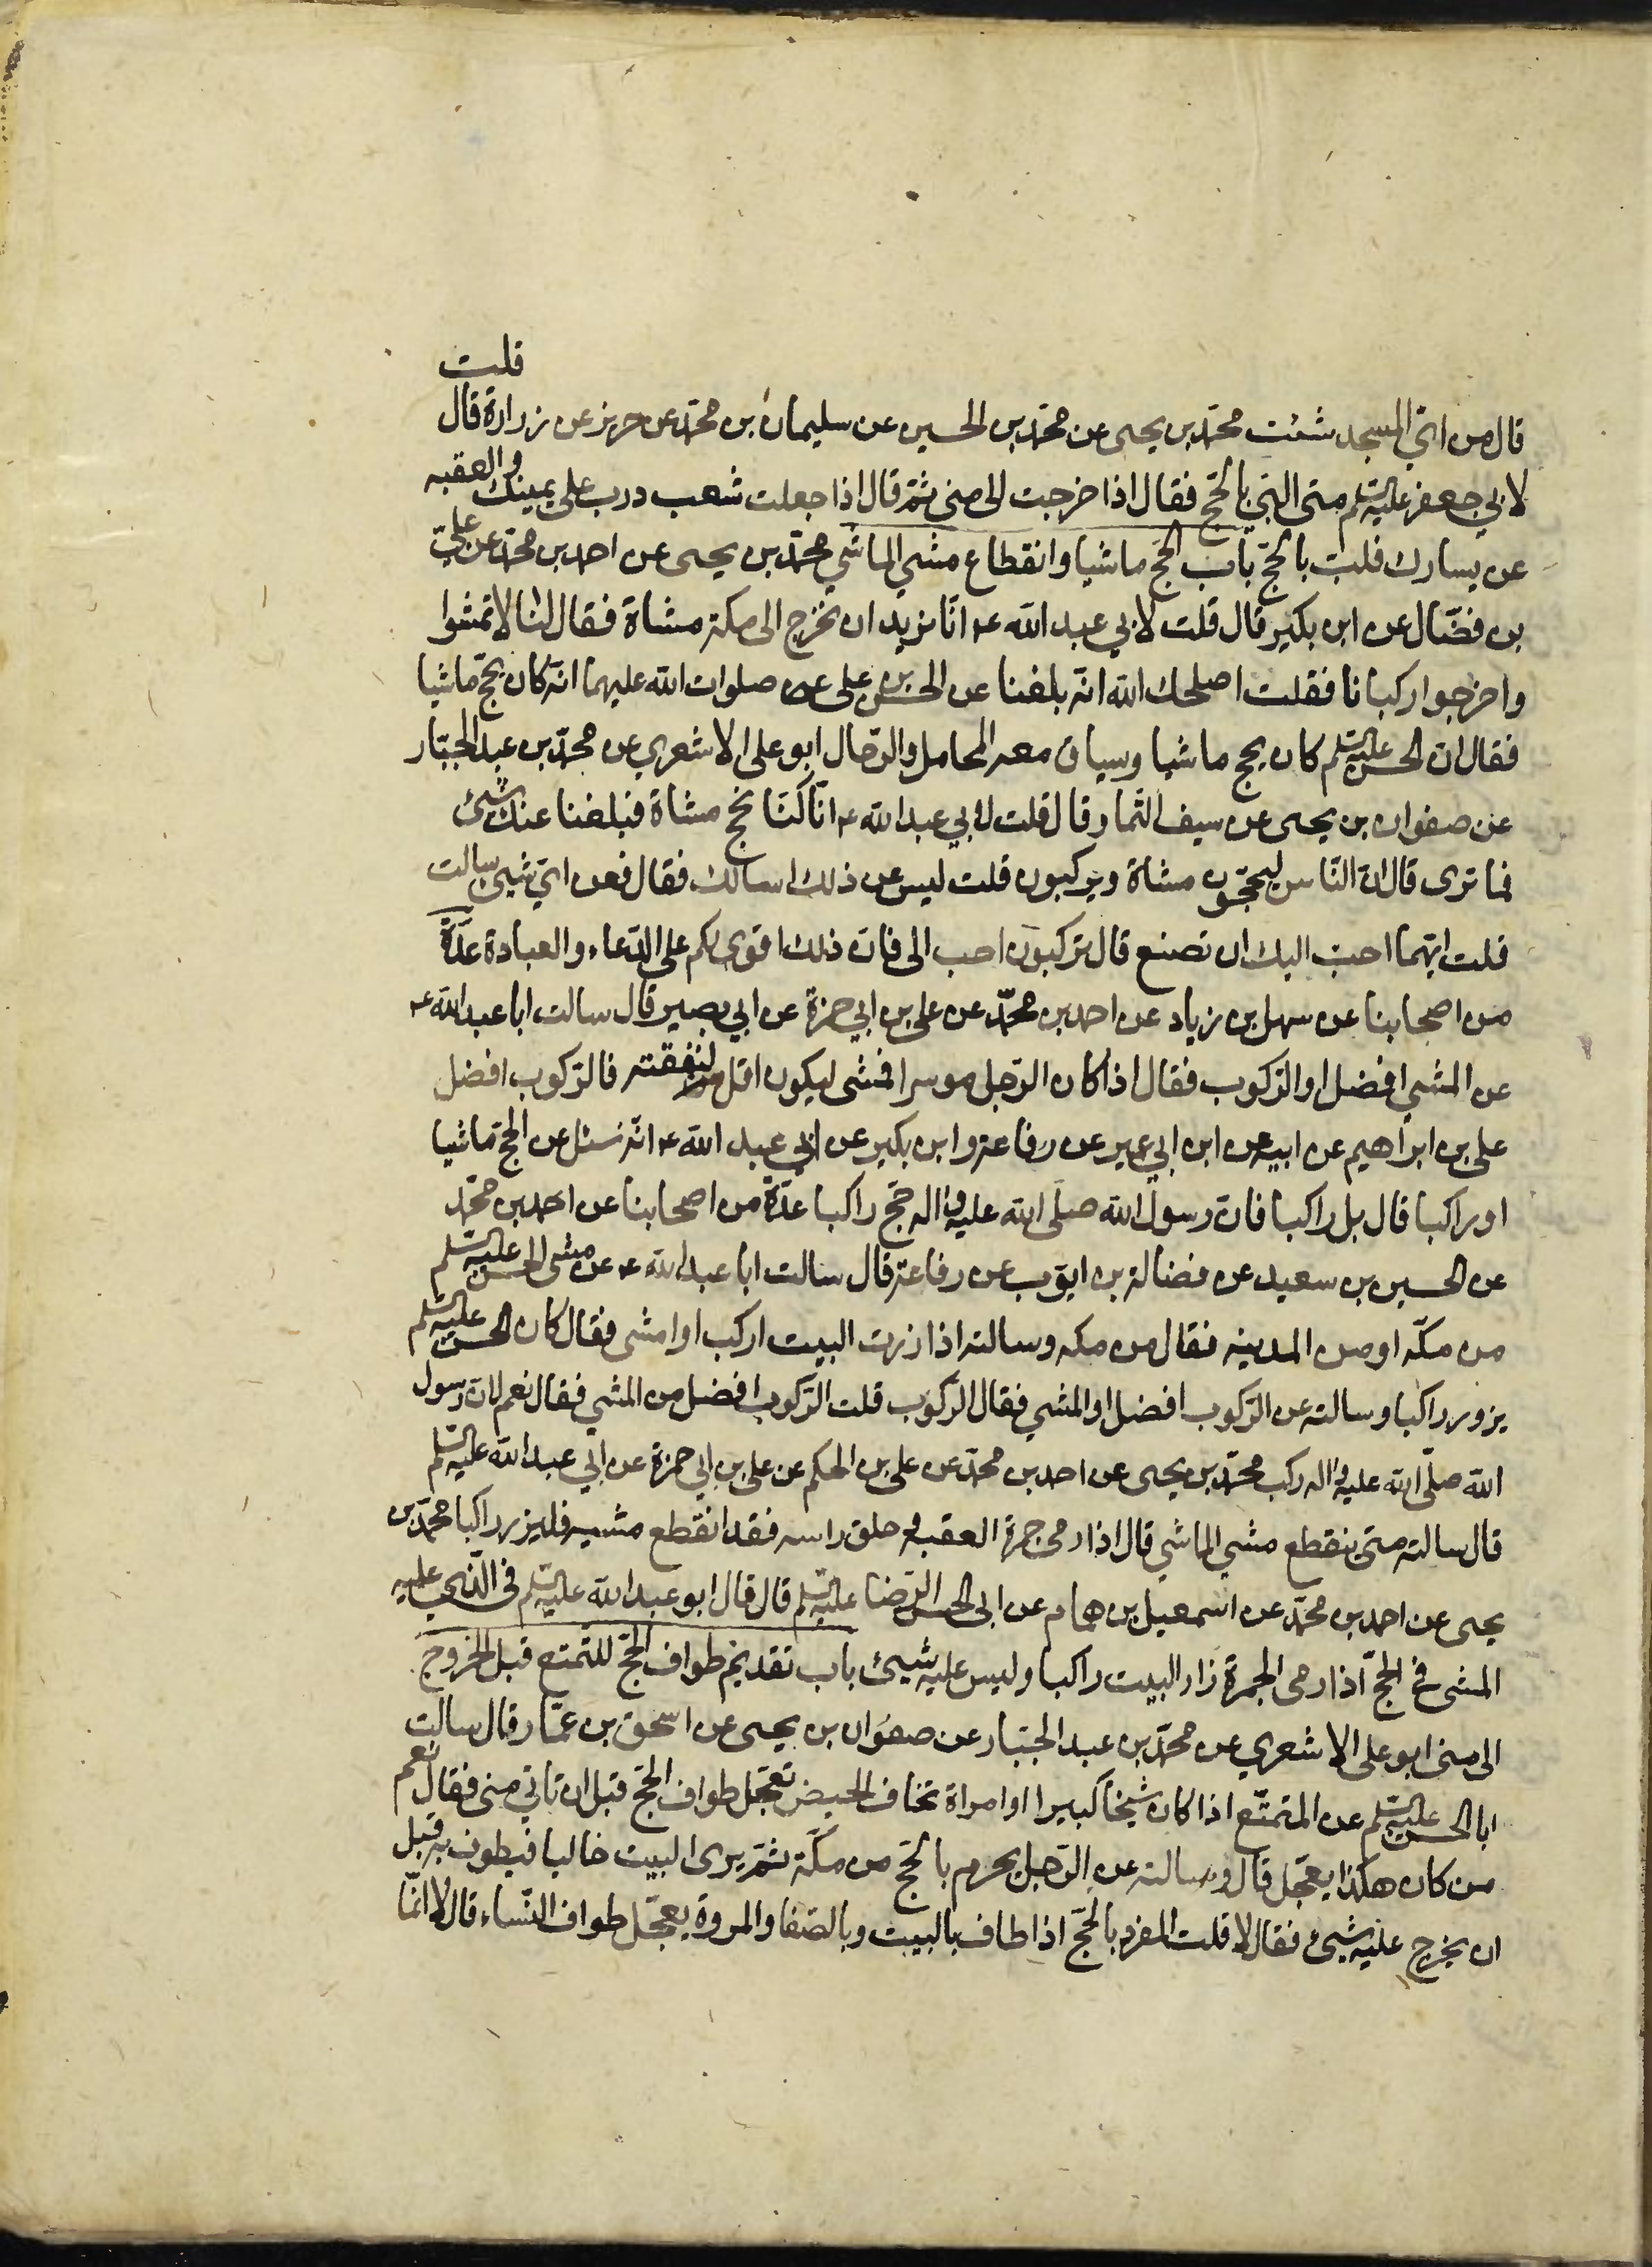 قلت
قال من اي المسجد شئت محمّد بن يحيى عن محمّد بن الحسين عن سليمان بن محمّد عن حريز عن زرارة قال
لابي جعفر عليه السّلم متى البّي بالحّج فقال اذا خرجت الى منى ثمّ قال اذا جعلت شعب درب على يمينك والعقبه
عن يسارك فلبّ بالحّج باب الحّج ماشيا وانقطاع مشي الماشي محمّد بن يحيى عن احمد بن محمّد عن عليّ
بن فضّال عن ابن بكير قال قلت لابي عبد الله ع انّا نريد ان نخرج الى مكة مشاة فقال لنا لا تمشوا
واخرجوا ركبانا فقلت اصلحك الله انّه بلغنا عن الحسن بن علي صلوات الله عليهما انّه كان يحجّ ماشيا
فقال ان الحسن عليه السّلم كان يحج ماشيا وسياق معه المحامل والرّحال ابو علي الاشعري عن محمّد بن عبد الجبّار
عن صفوان بن يحيى عن سيف التّمار قال قلت لابي عبد الله ع انّا كنّا نحج مشاة فبلغنا عنك شئ
فما ترى قال ان النّاس ليحجّون مشاة ويركبون قلت ليس عن ذلك اسالك فقال فعن ايّ شيئ سالت
قلت ايّهما احبّ اليك ان نصنع قال تركبون احب الى فان ذلك اقوى لكم على الدّعاء والعبادة عدّة
من اصحابنا عن سهل بن زياد عن احمد بن محمّد عن علي بن ابي حمزة عن ابي بصير قال سالت ابا عبد الله ع
عن المشي افضل او الرّكوب فقال اذا كان الرّجل موسرا فمشى ليكون اقل لنفقته فالرّكوب افضل
علي بن ابراهيم عن ابيه عن ابن ابي عمير عن رفاعة وابن بكير عن ابي عبد الله ع انّه سئل عن الحجّ ماشيا
او راكبا قال بل راكبا فان رسول الله صلّى الله عليه واله حجّ راكبا عدّة من اصحابنا عن احمد بن محمّد
عن الحسين بن سعيد عن فضالة بن ايوّب عن رفاعة قال سالت ابا عبد الله ع عن مشى الحسن عليه السّلم
من مكّه او من المدينه فقال من مكه وسالته اذا زرت البيت اركب او امشى فقال كان الحسن عليه السّلم
يزور راكبا وسالته عن الرّكوب افضل او المشي فقال الركوب قلت الرّكوب افضل من المشي فقال نعم لان رسول
الله صلّى الله عليه واله ركب محمّد بن يحيى عن احمد بن محمّد عن علي بن الحكم عن علي بن ابي حمزة عن ابي عبد الله عليه السّلم
قال سالته متى ينقطع مشي الماشي قال اذا رمى جمرة العقبه وحلق راسه فقد انقطع مشيه فليزر راكبا محمّد بن
يحيى عن احمد بن محمّد عن اسمعيل بن همام عن ابى الحسن الرّضا عليه السّلم قال قال ابو عبد الله عليه السّلم فى الّذي عليه
المشى في الحجّ اذا رمى الجمرة زار البيت راكبا وليس عليه شيئ باب تقديم طواف الحجّ للمتّمتع قبل الخروج
الى منى ابو علي الاشعري عن محمّد بن عبد الجبّار عن صفوان بن يحيى عن اسحق بن عمّار قال سالت
ابا الحسن عليه السّلم عن المتمتّع اذا كان شيخا كبيرا او امراة تخاف الحيض تعجّل طواف الحجّ قبل ان تاتي منى فقال نعم
من كان هكذا يعجّل قال وسالته عن الرّجل يحرم بالحّج من مكّة ثمّ يرى البيت خاليا فيطوف به قبل
ان يخرج عليه شيئ فقال لا قلت المفرد بالحّج اذا طاف بالبيت وبالصّفا والمروة يعجّل طواف النّساء قال لا انّما